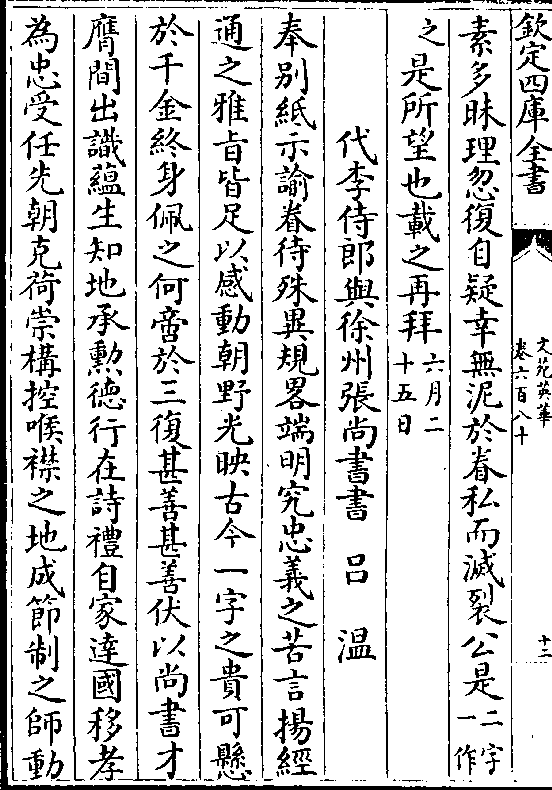 欽定四庫全書
文苑英華
卷六百八十
十二
素多昧理忽復自疑幸無泥於眷私而滅裂公是二字一作
之是所望也載之再拜六月二十五日
代李侍郎與徐州張尚書書 吕温
奉别紙示諭眷待殊異規畧端明究忠義之苦言揚經
通之雅旨皆足以感動朝野光映古今一字之貴可懸
於千金終身佩之何啻於三復甚善甚善伏以尚書才
膺間出識蘊生知地承勲德行在詩禮自家達國移孝
為忠受任先朝克荷崇構控喉襟之地成節制之師動